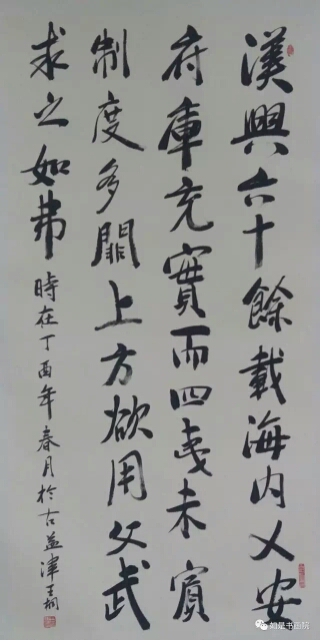 漢興六十餘載海内乂安
府庫充實而四夷未賓
制度多闕上方欲用文武
求之如弗
時在丁酉年春月於古益津王桐
如是书画院